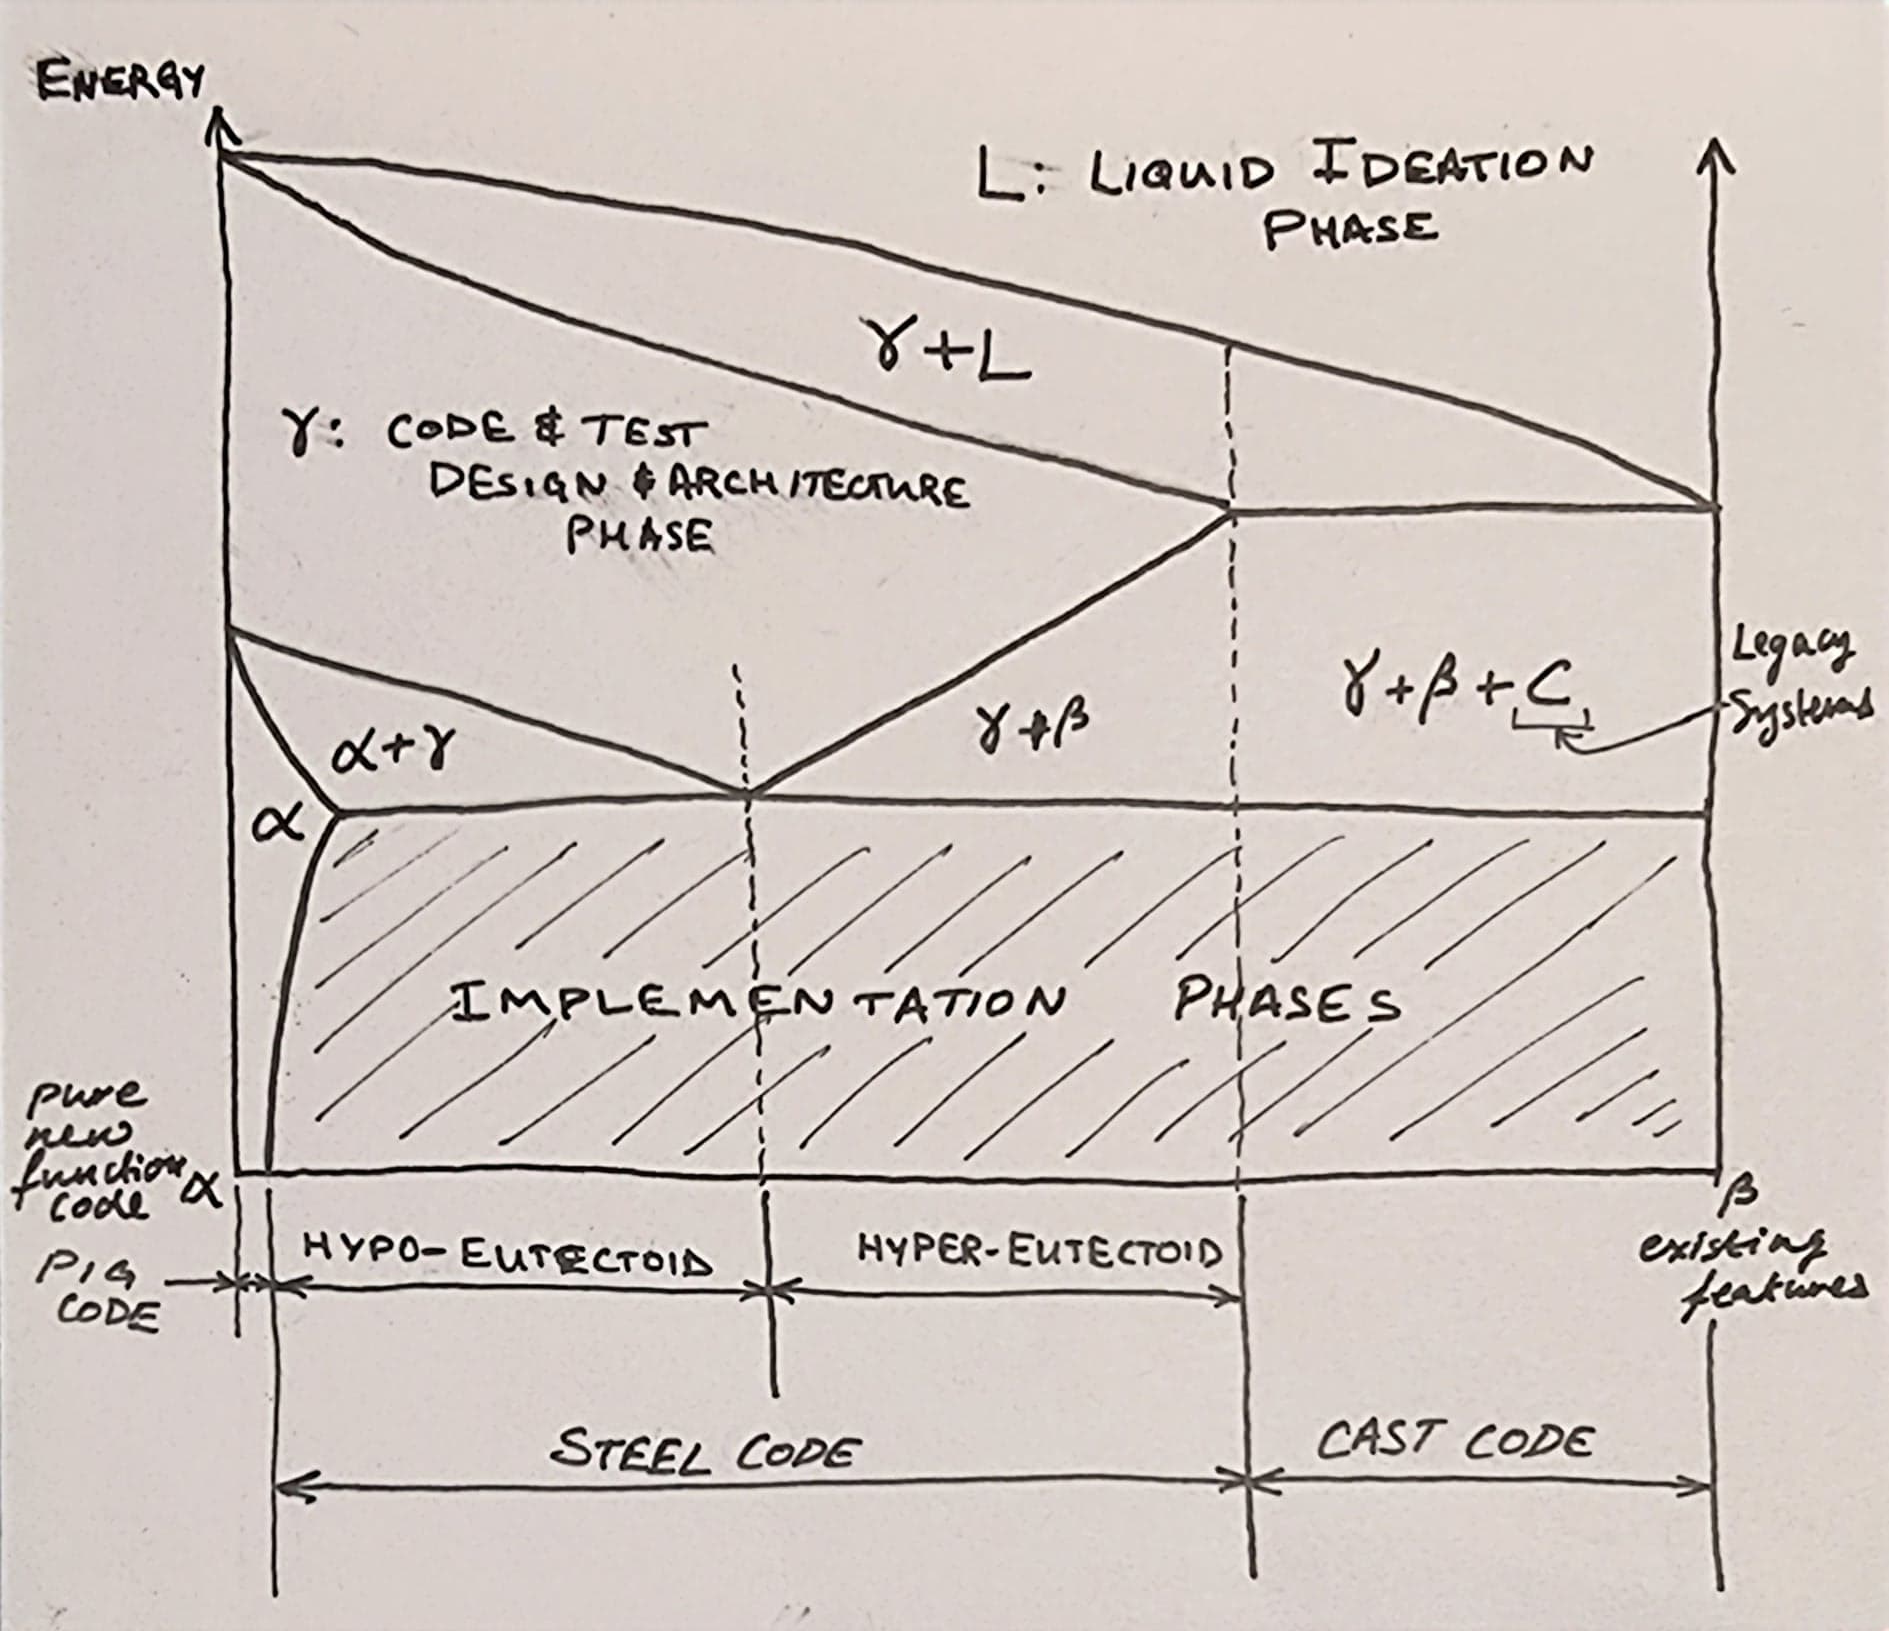 ENERGY
L: LIQUID IDEATION
PHASE
γ+L
γ: CODE & TEST
DESIGN & ARCHITECTURE
PHASE
Legacy
Systems
γ+β+C
γ+β
α+γ
α
IMPLEMENTATION PHASES
pure
new
function
code
α
β
existing
features
PIG
CODE
HYPO-EUTECTOID
HYPER-EUTECTOID
STEEL CODE
CAST CODE